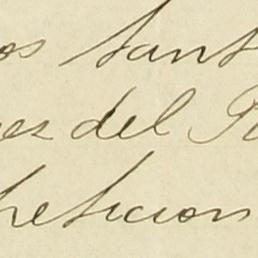 os tant
es del P
peticion